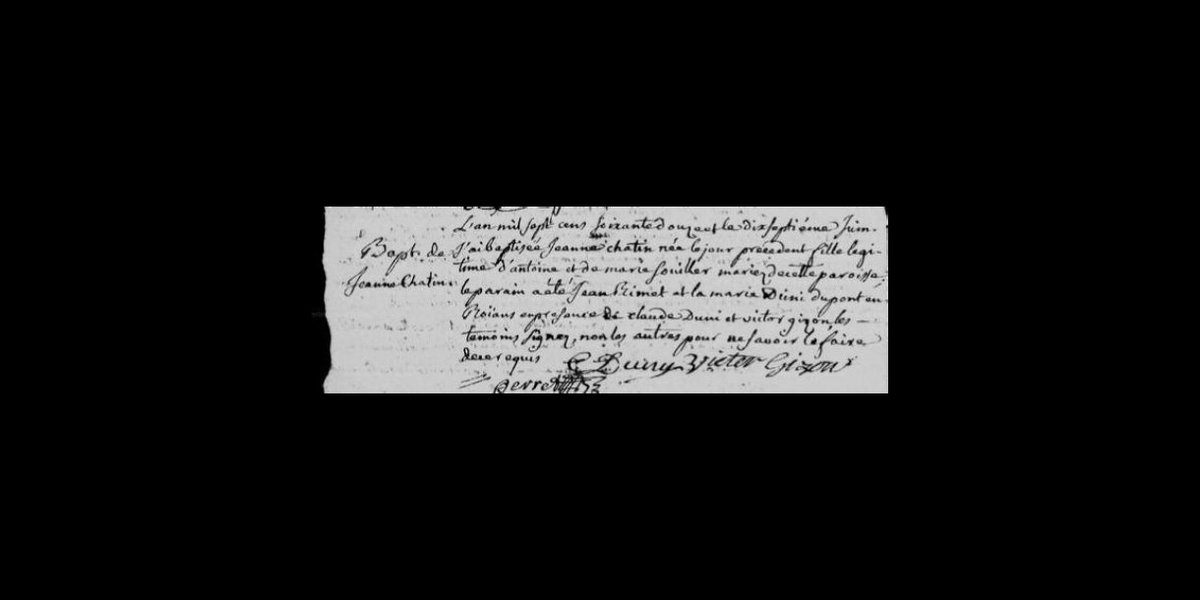 L'an mil sept cens soixante douze et le dix septiéme Juin
Bapt. de
Jeanne Chatin
J'ai baptisée Jeanne chatin née le jour précédent fille legi-
time d'antoine et de marie souiller mariez de cette paroisse
le parain a été Jean Rimet et la marie Duni du pont en
Roïans en presence de claude Duni et victor gizon les
temoins signez, non les autres pour ne savoir le faire
de ce requis
C Duny Victor Gizon
Perret